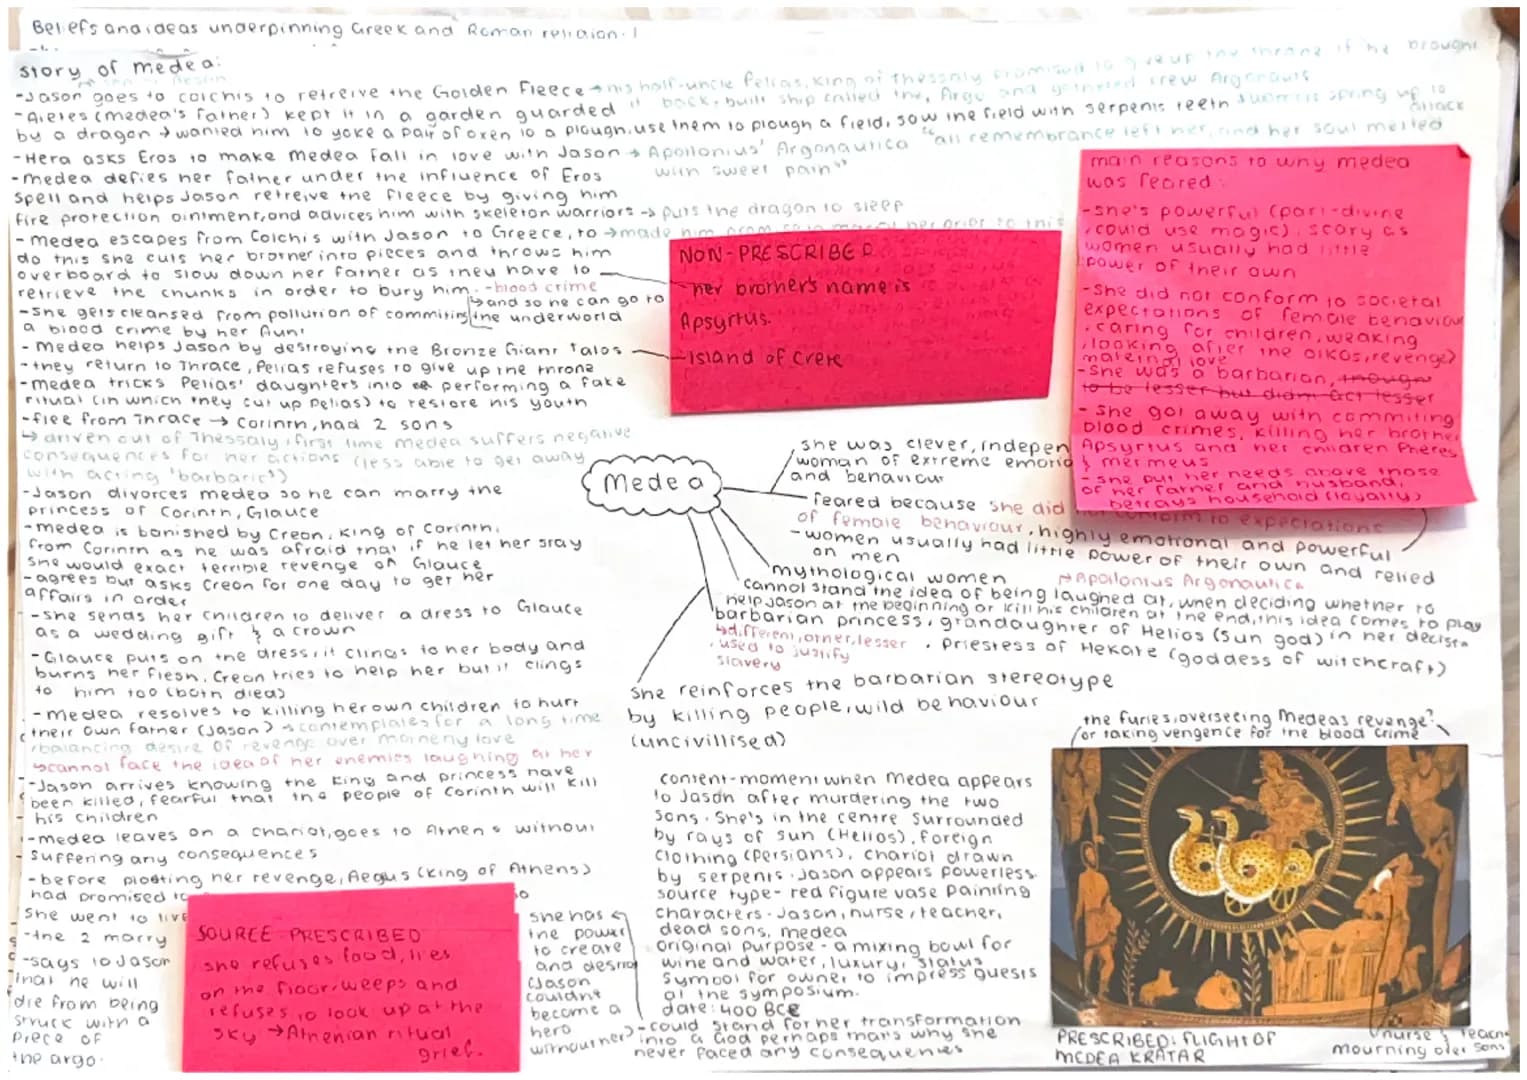 Beliefs and ideas underpinning Greek and Roman religion:
story of medea:
-Jason goes to colchis to retreive the Golden Fleece → his half-uncle Pelias, King of Thessaly promised to give up the throne if he brought
it back, built ship called the Argo and gathered crew Argonauts
-Aietes (medea's father) kept it in a garden guarded
by a dragon → wanted him to yoke a pair of oxen to a plough, use them to plough a field, sow the field with serpents teeth warriors spring up to attack
-Hera asks Eros to make Medea fall in love with Jason → Apollonius' Argonautica "all remembrance left her, and her soul melted
with sweet pain"
-medea defies her father under the influence of Eros
spell and helps Jason retreive the fleece by giving him
fire protection ointment, and advices him with skeleton warriors → puts the dragon to sleep
-medea escapes from Colchis with Jason to Greece, to → made him her prior to this
do this she cuts her brother into pieces and throws him
overboard to slow down her father as they have to
retrieve the chunks in order to bury him. -blood crime
-she gets cleansed from pollution of commiting
a blood crime by her Aunt
↳ and so he can go to
the underworld
-medea helps Jason by destroying the Bronze Giant Talos
-they return to Thrace, Pelias refuses to give up the throne
-medea tricks Pelias' daughters into performing a fake
ritual (in which they cut up Pelias) to restore his youth
-flee from Thrace → Corinth, had 2 sons
↳ driven out of Thessaly, first time medea suffers negative
consequences for her actions (less able to get away
with acting 'barbaric')
-Jason divorces medea so he can marry the
princess of Corinth, Glauce
-medea is banished by Creon, King of Corinth,
from Corinth as he was afraid that if he let her stay
she would exact terrible revenge on Glauce
-agrees but asks Creon for one day to get her
affairs in order
-she sends her children to deliver a dress to Glauce
as a wedding gift & a crown
-Glauce puts on the dress, it clings to her body and
burns her flesh, Creon tries to help her but it clings
to him too (both died)
-medea resolves to killing her own children to hurt
their own father (Jason) → contemplates for a long time
balancing desire of revenge over motherly love
↳ cannot face the idea of her enemies laughing at her
-Jason arrives knowing the king and princess have
been killed, fearful that the people of Corinth will kill
his children
-medea leaves on a chariot, goes to Athens without
suffering any consequences
-before plotting her revenge, Aegus (King of Athens)
had promised to
she went to live
-the 2 marry
-says to Jason
that he will
die from being
struck with a
piece of
the argo.
SOURCE PRESCRIBED
she refuses food, lies
on the floor, weeps and
refuses to look up at the
sky → Athenian ritual
grief.
she has
the power
to create
and destroy
(Jason
couldnt
become a
hero
without her)
NON-PRESCRIBED
her brother's name is
Apsyrtus.
Island of Crete
main reasons to why medea
was feared:
-she's powerful (part-divine
, could use magic), scary as
women usually had little
power of their own
-She did not conform to societal
expectations of female behaviour
, caring for children, weaking
, looking after the oikos, revenge>
love
-She was a barbarian, though
to be lesser but didnt act lesser
-She got away with commiting
blood crimes, killing her brother
Apsyrtus and her children Pheres
& mermeus
-she put her needs above those
of her father and husband,
betrays household (loyalty)
Medea
she was clever, indepen
woman of extreme emotio
and behaviour
feared because she did not conform to expectations
of female behaviour, highly emotional and powerful
-women usually had little power of their own and relied
on men
mythological women
↱ Apollonius Argonautica
cannot stand the idea of being laughed at, when deciding whether to
help Jason at the beginning or kill his children at the end, this idea comes to play
in her decision
barbarian princess, grandaughter of Helios (sun god)
↳ different, other, lesser
, used to justify
slavery
. Priestess of Hekate (goddess of witchcraft)
She reinforces the barbarian stereotype
by killing people, wild behaviour
(uncivillised)
content-moment when Medea appears
to Jason after murdering the two
sons. She's in the centre surrounded
by rays of sun (Helios), foreign
clothing (Persians), chariot drawn
by serpents. Jason appears powerless
source type- red figure vase painting
characters- Jason, nurse, teacher,
dead sons, medea
original purpose- a mixing bowl for
wine and water, luxury, status
symbol for owner to impress guests
at the symposium.
date: 400 BCE
-could stand for her transformation
into a God perhaps thats why she
never faced any consequences
the furies, overseeing Medeas revenge?
or taking vengence for the blood crime
PRESCRIBED: FLIGHT OF
MEDEA KRATAR
nurse & teach
mourning over sons